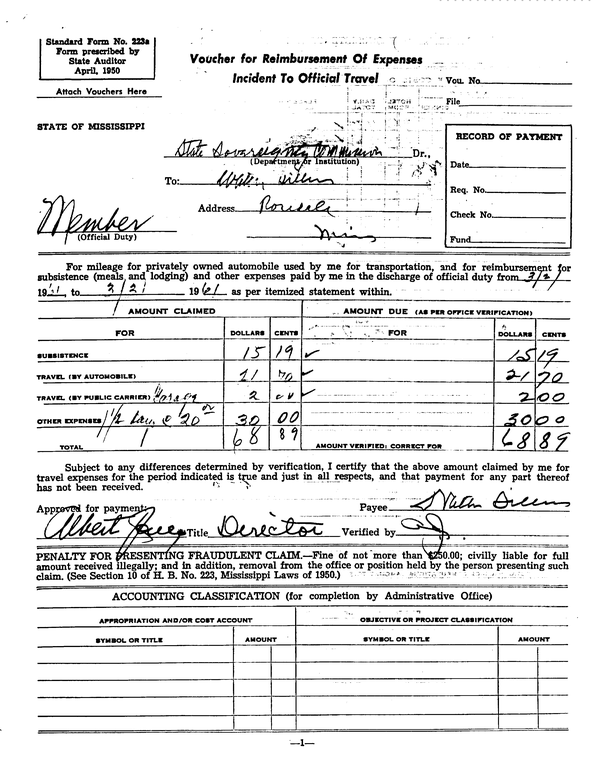 Standard Form No. 223a
Form prescribed by
State Auditor
April, 1950
Attach Vouchers Here
Voucher for Reimbursement Of Expenses
Incident To Official Travel
Vou. No.
File
STATE OF MISSISSIPPI
State Sovereignty Commission Dr.,
(Department or Institution)
To:
Address
Miss
Member
(Official Duty)
RECORD OF PAYMENT
Date
Req. No.
Check No.
Fund
For mileage for privately owned automobile used by me for transportation, and for reimbursement for
subsistence (meals and lodging) and other expenses paid by me in the discharge of official duty from
19 to 3/21 1961 as per itemized statement within.
AMOUNT CLAIMED AMOUNT DUE (AS PER OFFICE VERIFICATION)
FOR DOLLARS CENTS FOR DOLLARS CENTS
SUBSISTENCE 15 19 ✓ 15 19
TRAVEL (BY AUTOMOBILE) 21 70 ✓ 21 70
TRAVEL (BY PUBLIC CARRIER) 2 00 ✓ 2 00
OTHER EXPENSES 1 1/2 days @ 20 00 30 00 30 00
TOTAL 68 89 AMOUNT VERIFIED: CORRECT FOR 68 89
Subject to any differences determined by verification, I certify that the above amount claimed by me for
travel expenses for the period indicated is true and just in all respects, and that payment for any part thereof
has not been received.
Approved for payment Payee
Albert Title Director Verified by
PENALTY FOR PRESENTING FRAUDULENT CLAIM.—Fine of not more than $250.00; civilly liable for full
amount received illegally; and in addition, removal from the office or position held by the person presenting such
claim. (See Section 10 of H. B. No. 223, Mississippi Laws of 1950.)
ACCOUNTING CLASSIFICATION (for completion by Administrative Office)
APPROPRIATION AND/OR COST ACCOUNT OBJECTIVE OR PROJECT CLASSIFICATION
SYMBOL OR TITLE AMOUNT SYMBOL OR TITLE AMOUNT
—1—